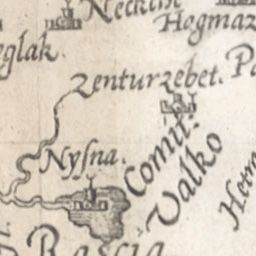 Neckche
Hogmaz
eglak.
Zenturzebet.
Nysna.
Comit:
Valko
Rascia